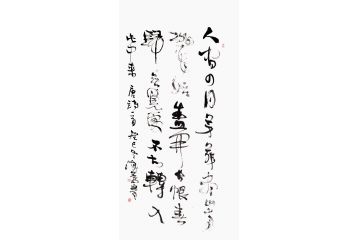 人間四月芳菲盡山寺
桃花始盛開長恨春
歸無覓處不知轉入
此中來 唐詩一首 癸巳冬 書